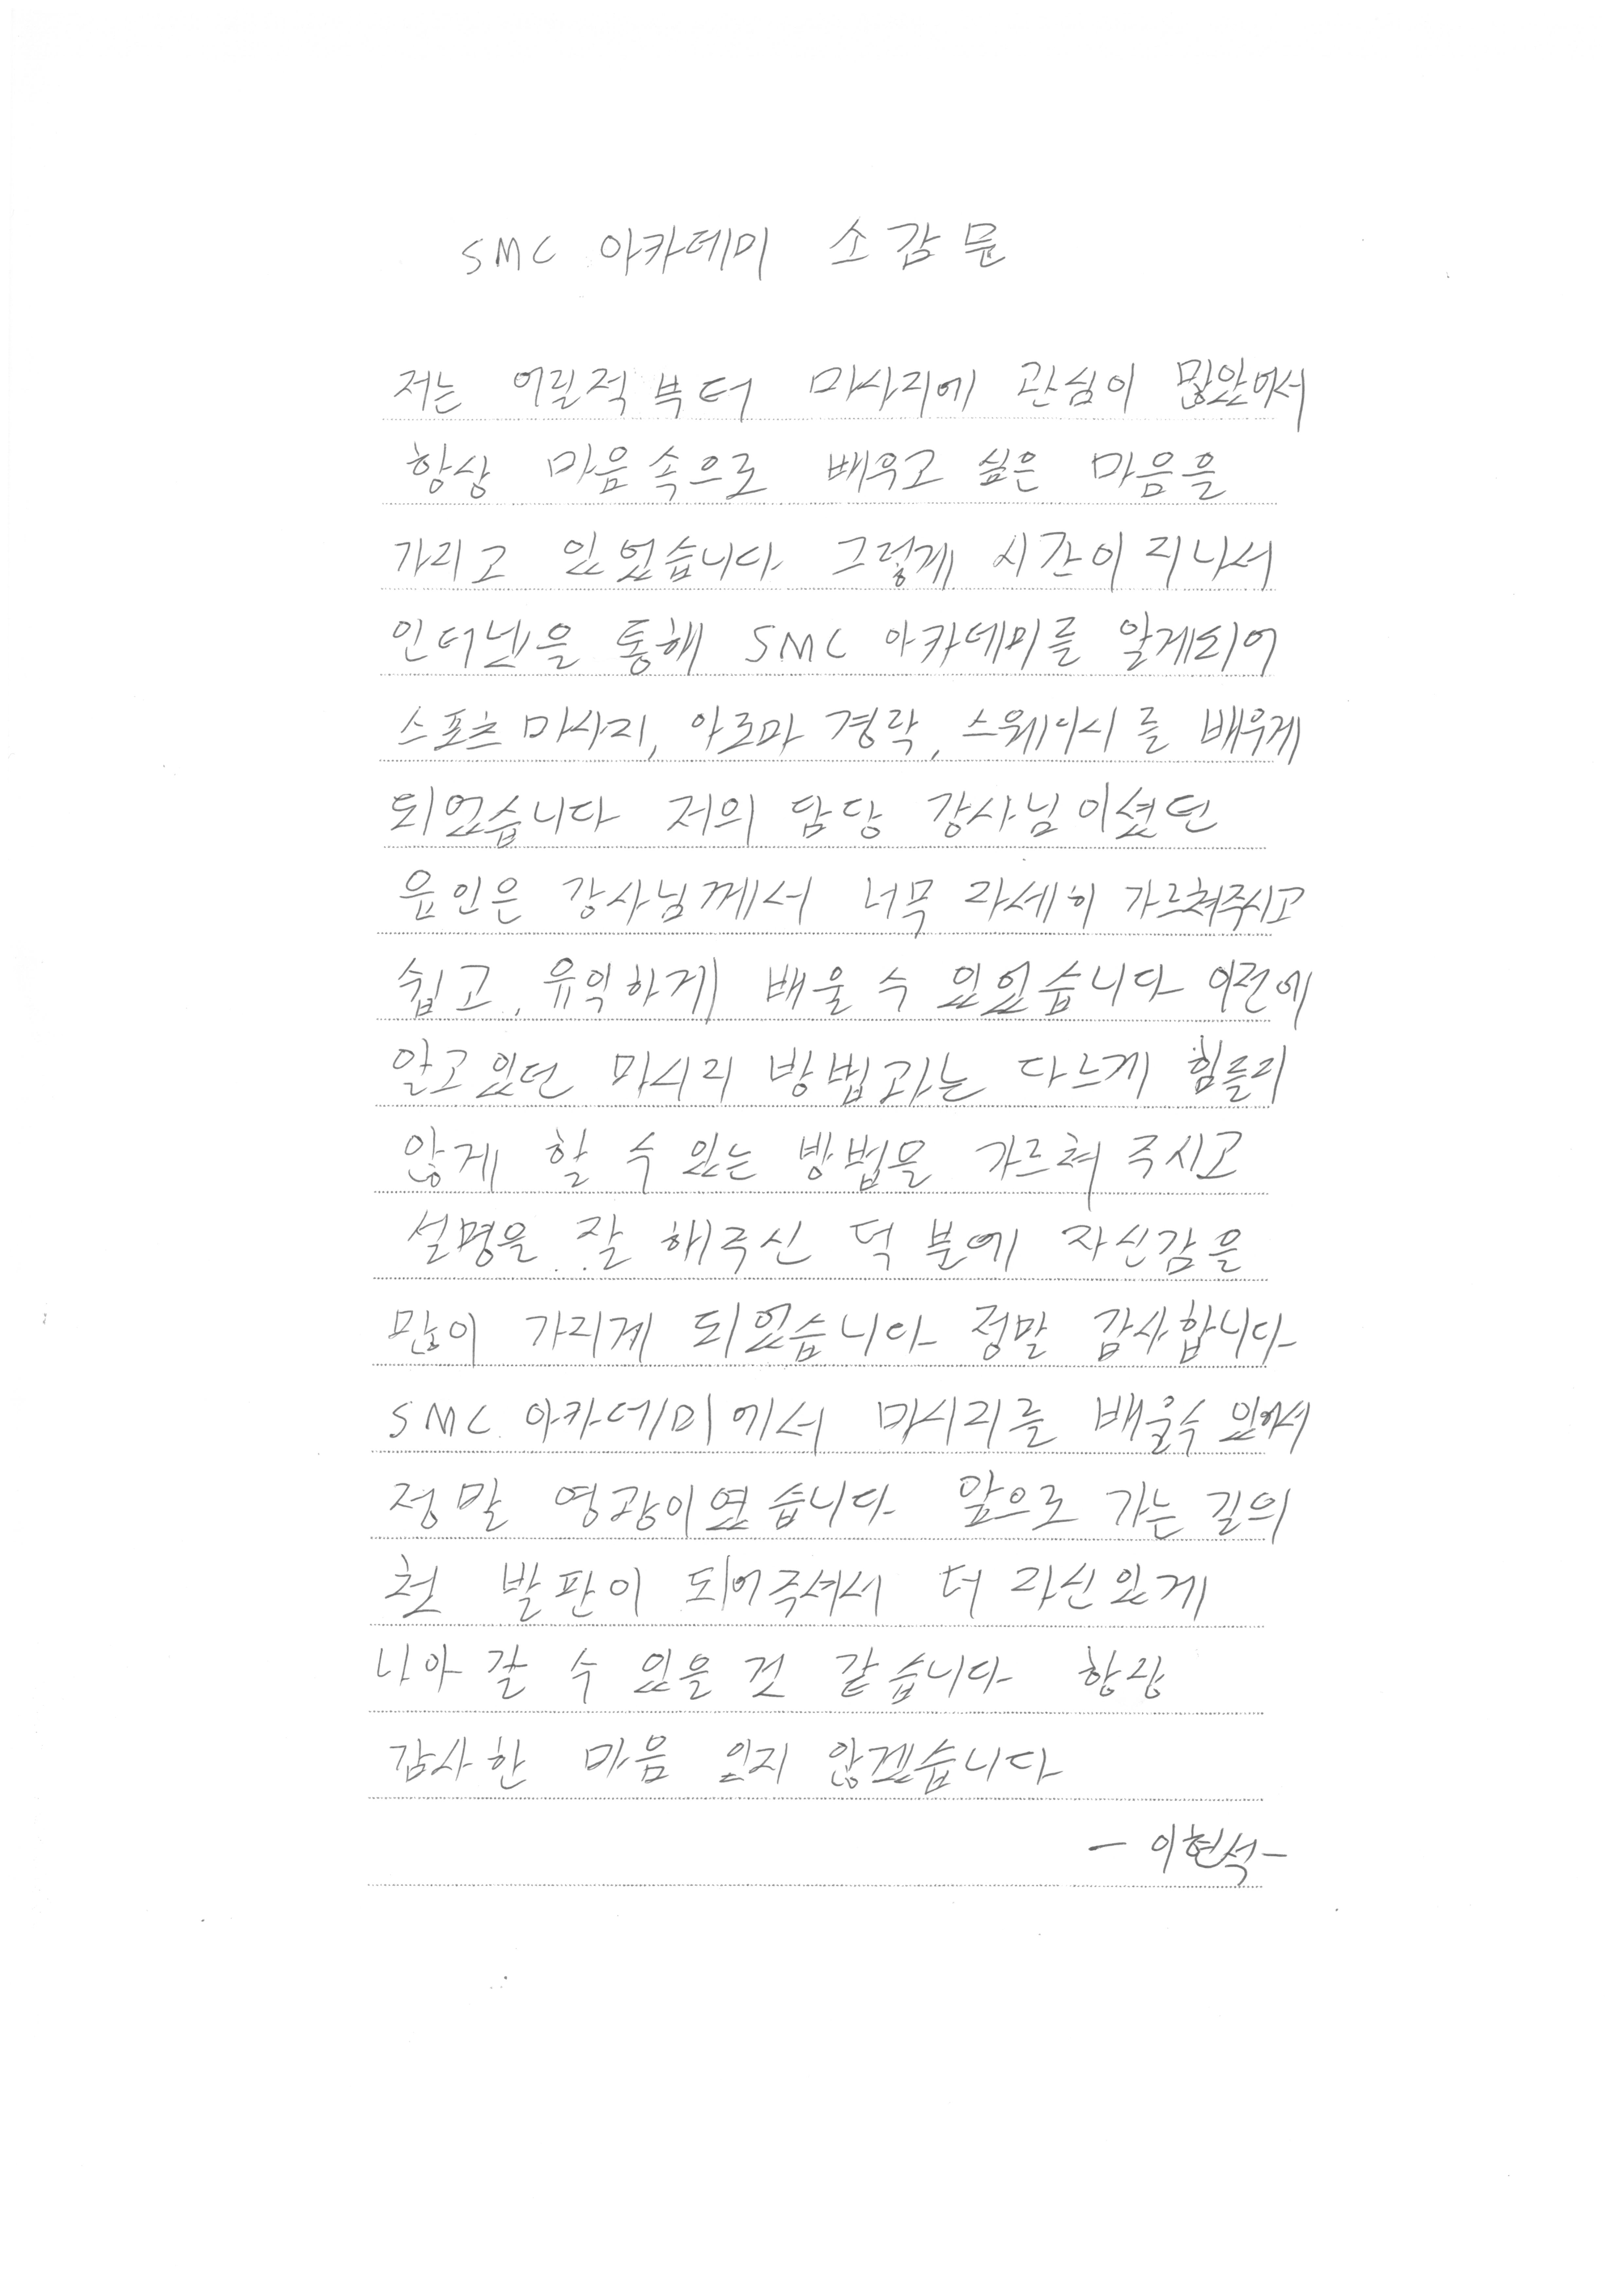 SMC 아카데미 소감문
저는 어릴적부터 마사지에 관심이 많았어서
항상 마음속으로 배우고 싶은 마음을
가지고 있었습니다 그렇게 시간이 지나서
인터넷을 통해 SMC 아카데미를 알게되어
스포츠 마사지, 아로마 경락, 스웨디시를 배우게
되었습니다 저의 담당 강사님이셨던
윤인은 강사님께서 너무 자세히 가르쳐주시고
쉽고, 유익하게 배울 수 있었습니다 이전에
알고있던 마사지 방법과는 다르게 힘들지
않게 할 수 있는 방법을 가르쳐 주시고
설명을 잘 해주신 덕분에 자신감을
많이 가지게 되었습니다 정말 감사합니다
SMC 아카데미에서 마사지를 배울수 있어서
정말 영광이였습니다 앞으로 가는 길의
첫 발판이 되어주셔서 더 자신있게
나아 갈 수 있을 것 같습니다 항상
감사한 마음 잊지 않겠습니다
- 이현석 -